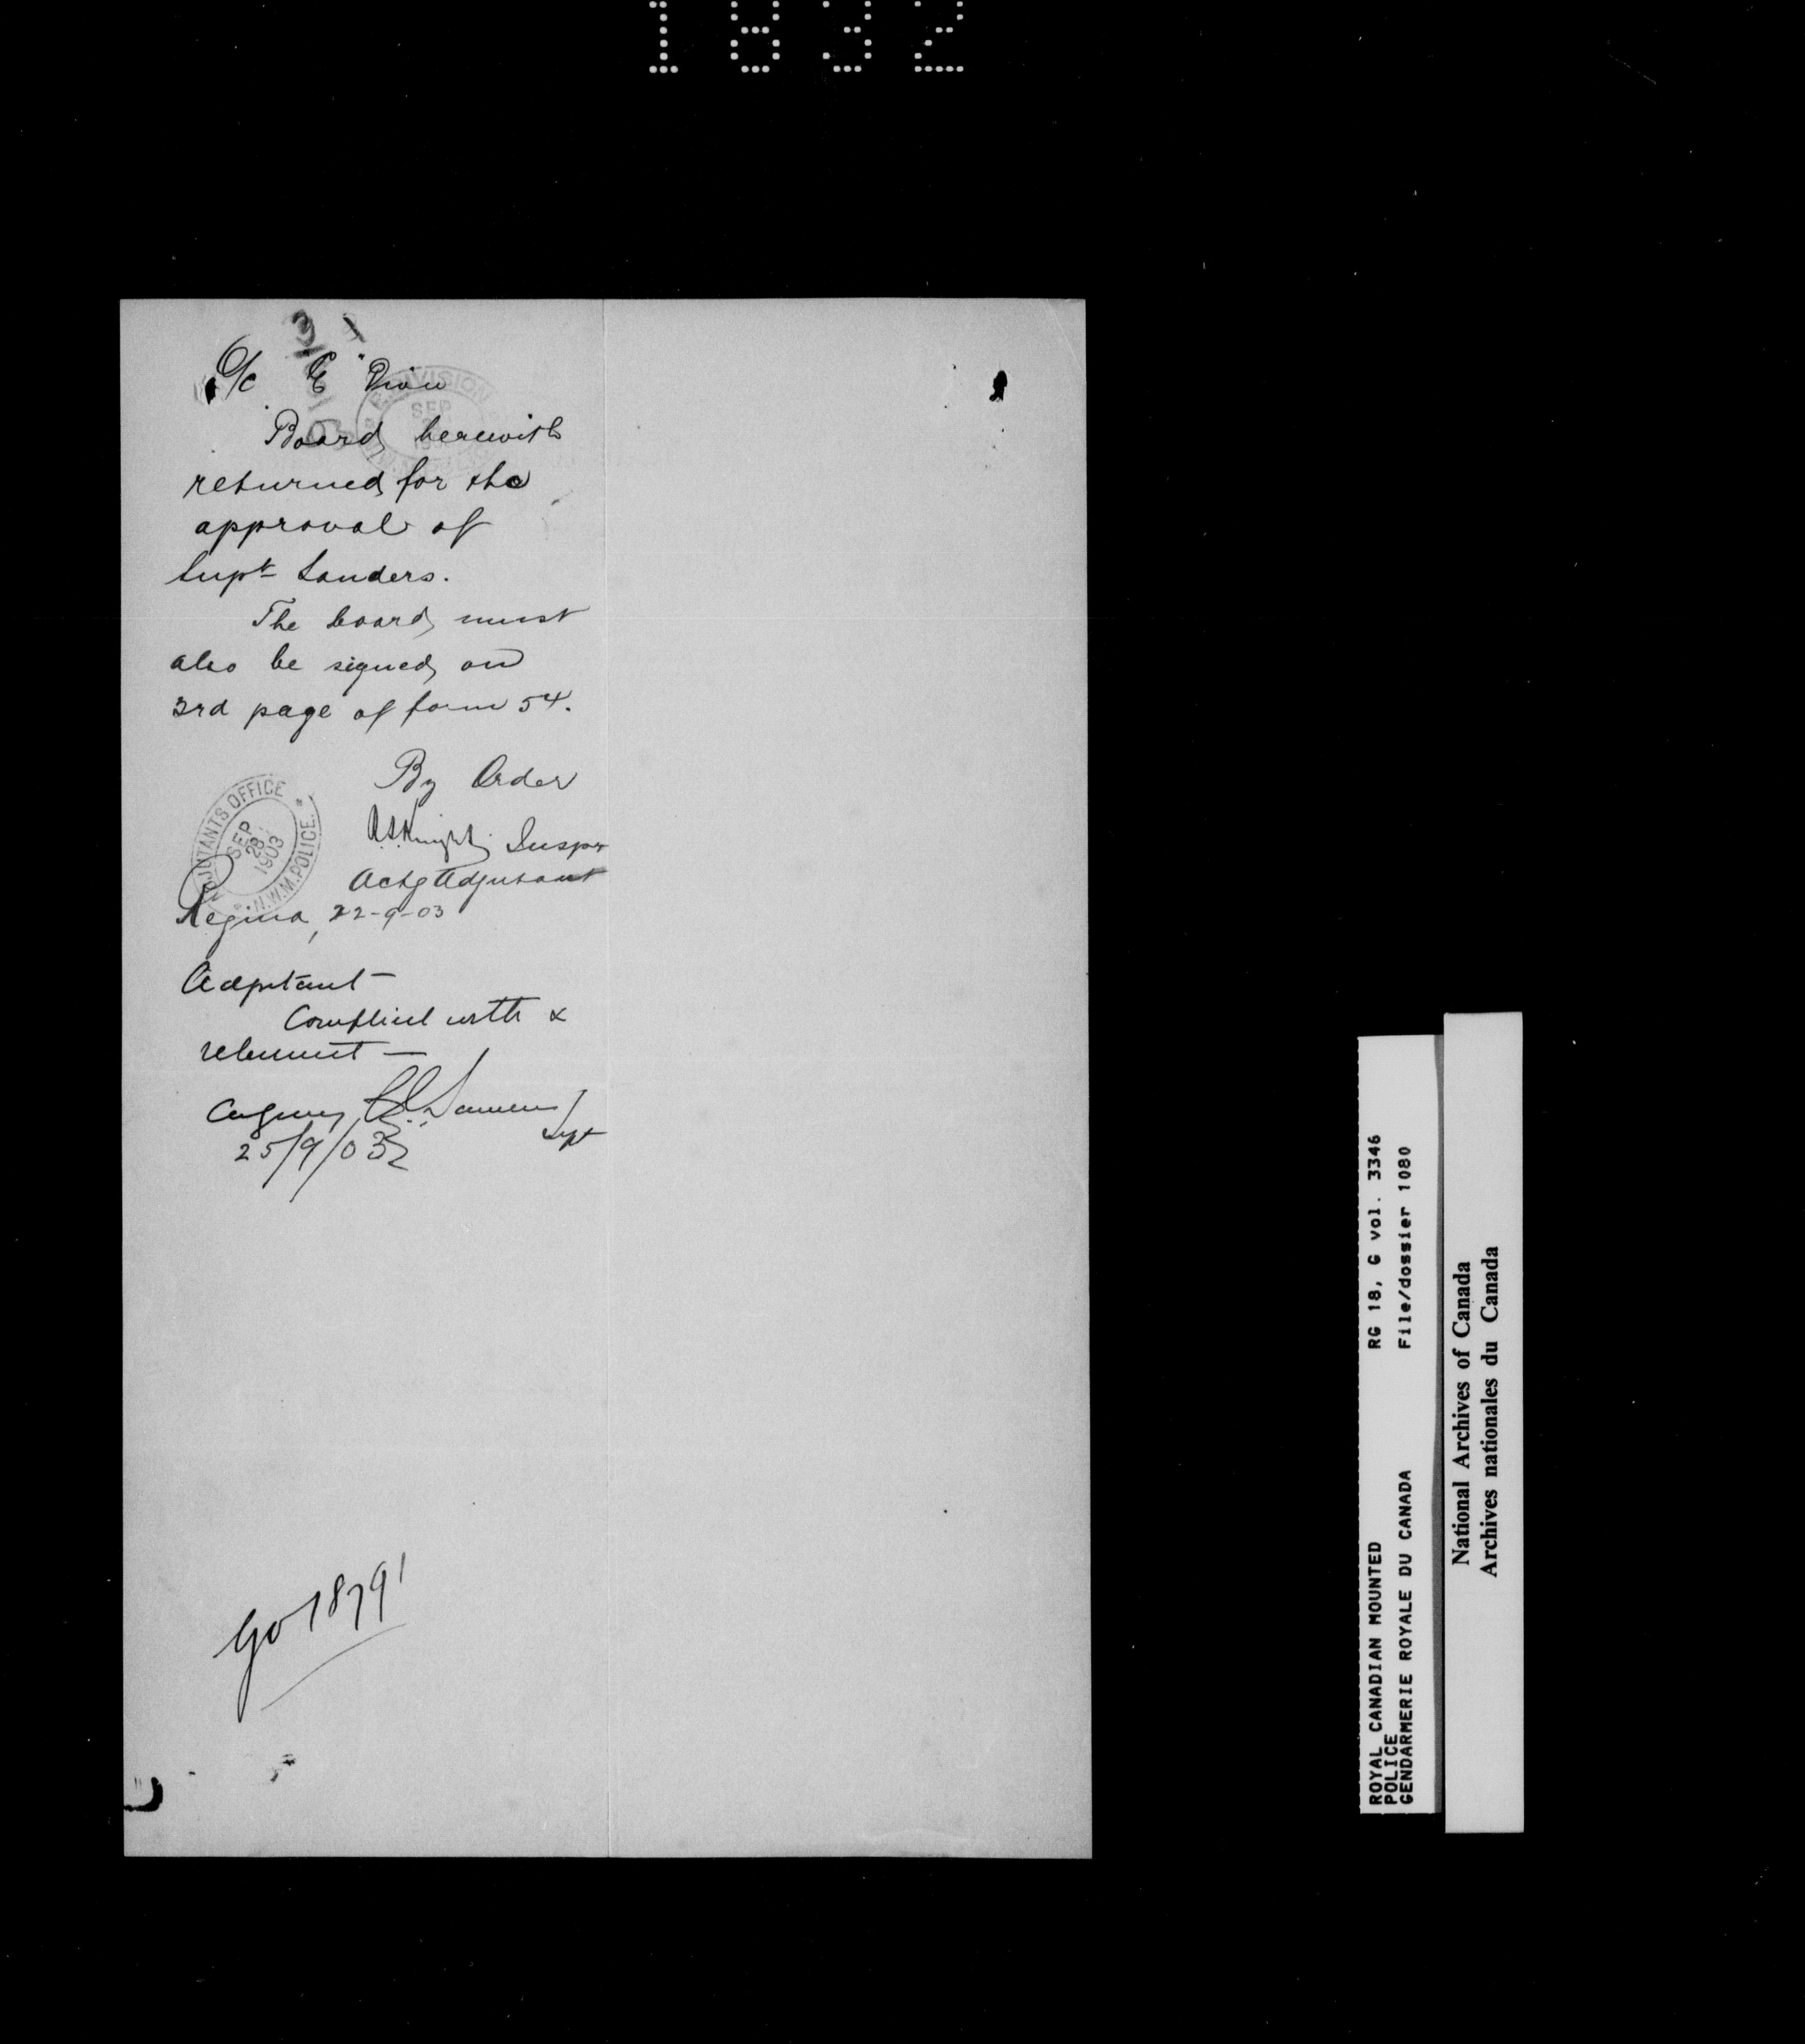 1832
O/c "E" Divn
E. DIVISION
SEP
Board herewith
returned for the
approval of
Supt Sanders.
The board must
also be signed on
3rd page of form 54.
By Order
Knight Inspr
Actg Adjutant
ADJUTANTS OFFICE
SEP
28
1903
N.W.M. POLICE.
Regina, 22-9-03
Adjutant —
Complied with &
returned —
Calgary G.E. Sanders
Supt
25/9/03
GO 1879
RG 18, G vol. 3346
File/dossier 1080
ROYAL CANADIAN MOUNTED
POLICE
GENDARMERIE ROYALE DU CANADA
National Archives of Canada
Archives nationales du Canada